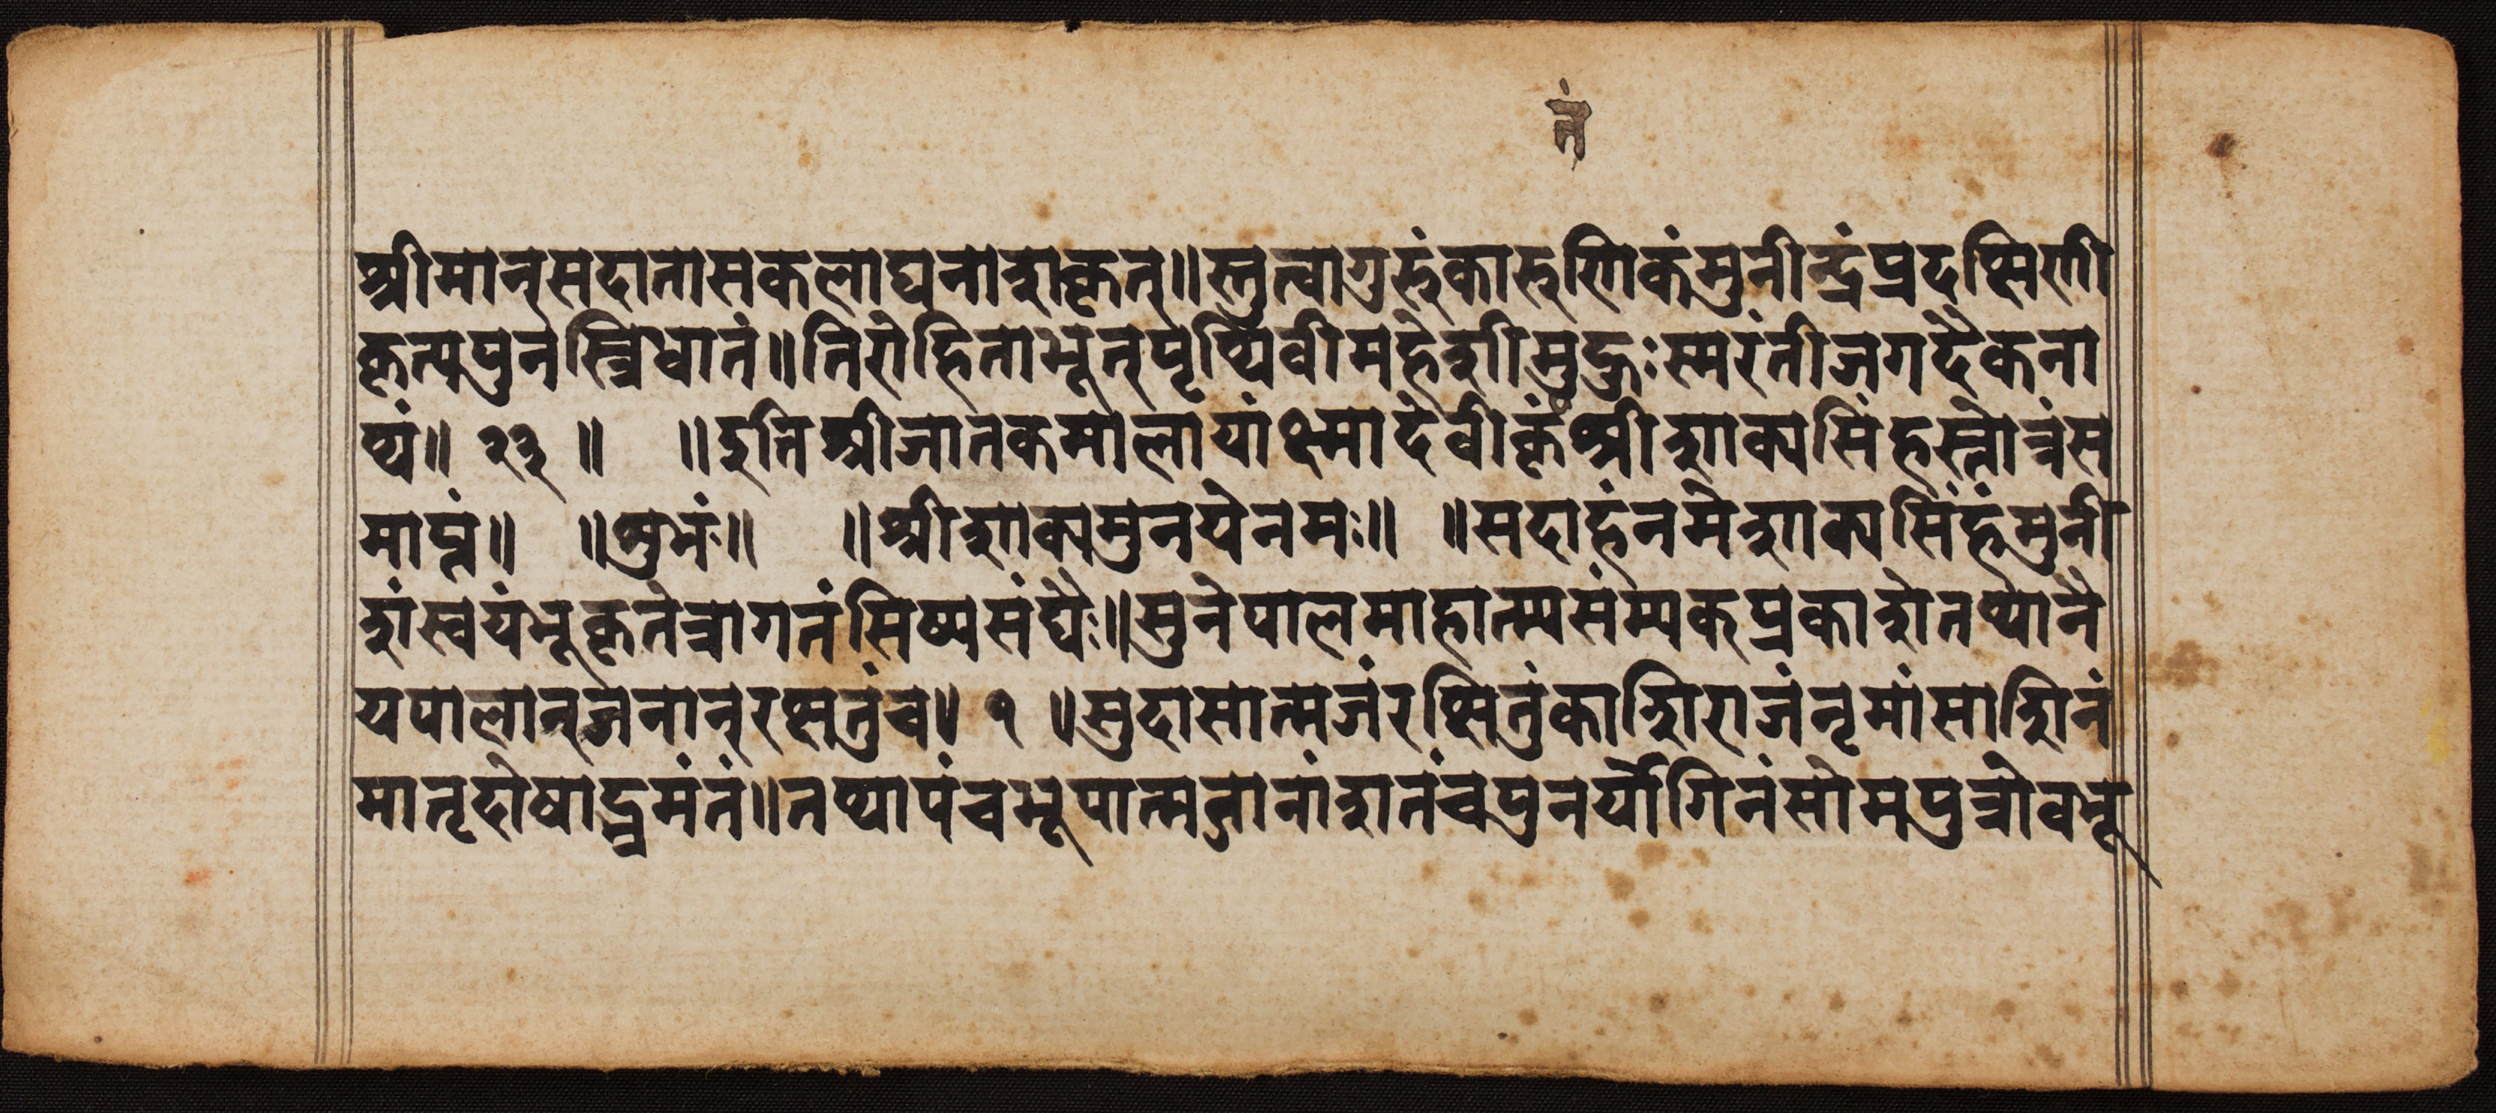 तं
श्रीमान्सदातासकलाघनाशकृत्॥स्तुत्वागुरुंकारुणिकंमुनीन्द्रंप्रदक्षिणी
कृत्यपुनस्त्रिधातं॥तिरोहिताभूत्पृथिवीमहेशीमुहुःस्मरंतीजगदैकना
थं॥ २३ ॥ ॥इतिश्रीजातकमालायांक्ष्मादेवीकृंश्रीशाक्यसिंहस्तोत्रंस
माप्तं॥ ॥शुभं॥ ॥श्रीशाक्यमुनयेनमः॥ ॥सदाहंनमेशाक्यसिंहंमुनी
शंस्वयंभूकृतेत्रागतंसिष्यसंघैः॥सुनेपालमाहात्म्यसंम्यक्प्रकाशेतथानै
यपालान्जनान्रक्षतुंच॥ १ ॥सुदासात्मजंरक्षितुंकाशिराजंनृमांसाशिनं
मातृदोषाद्भ्रमंतं॥तथापंचभूपात्मजानांशतंचपुनर्योगिनंसोमपुत्रोवभू